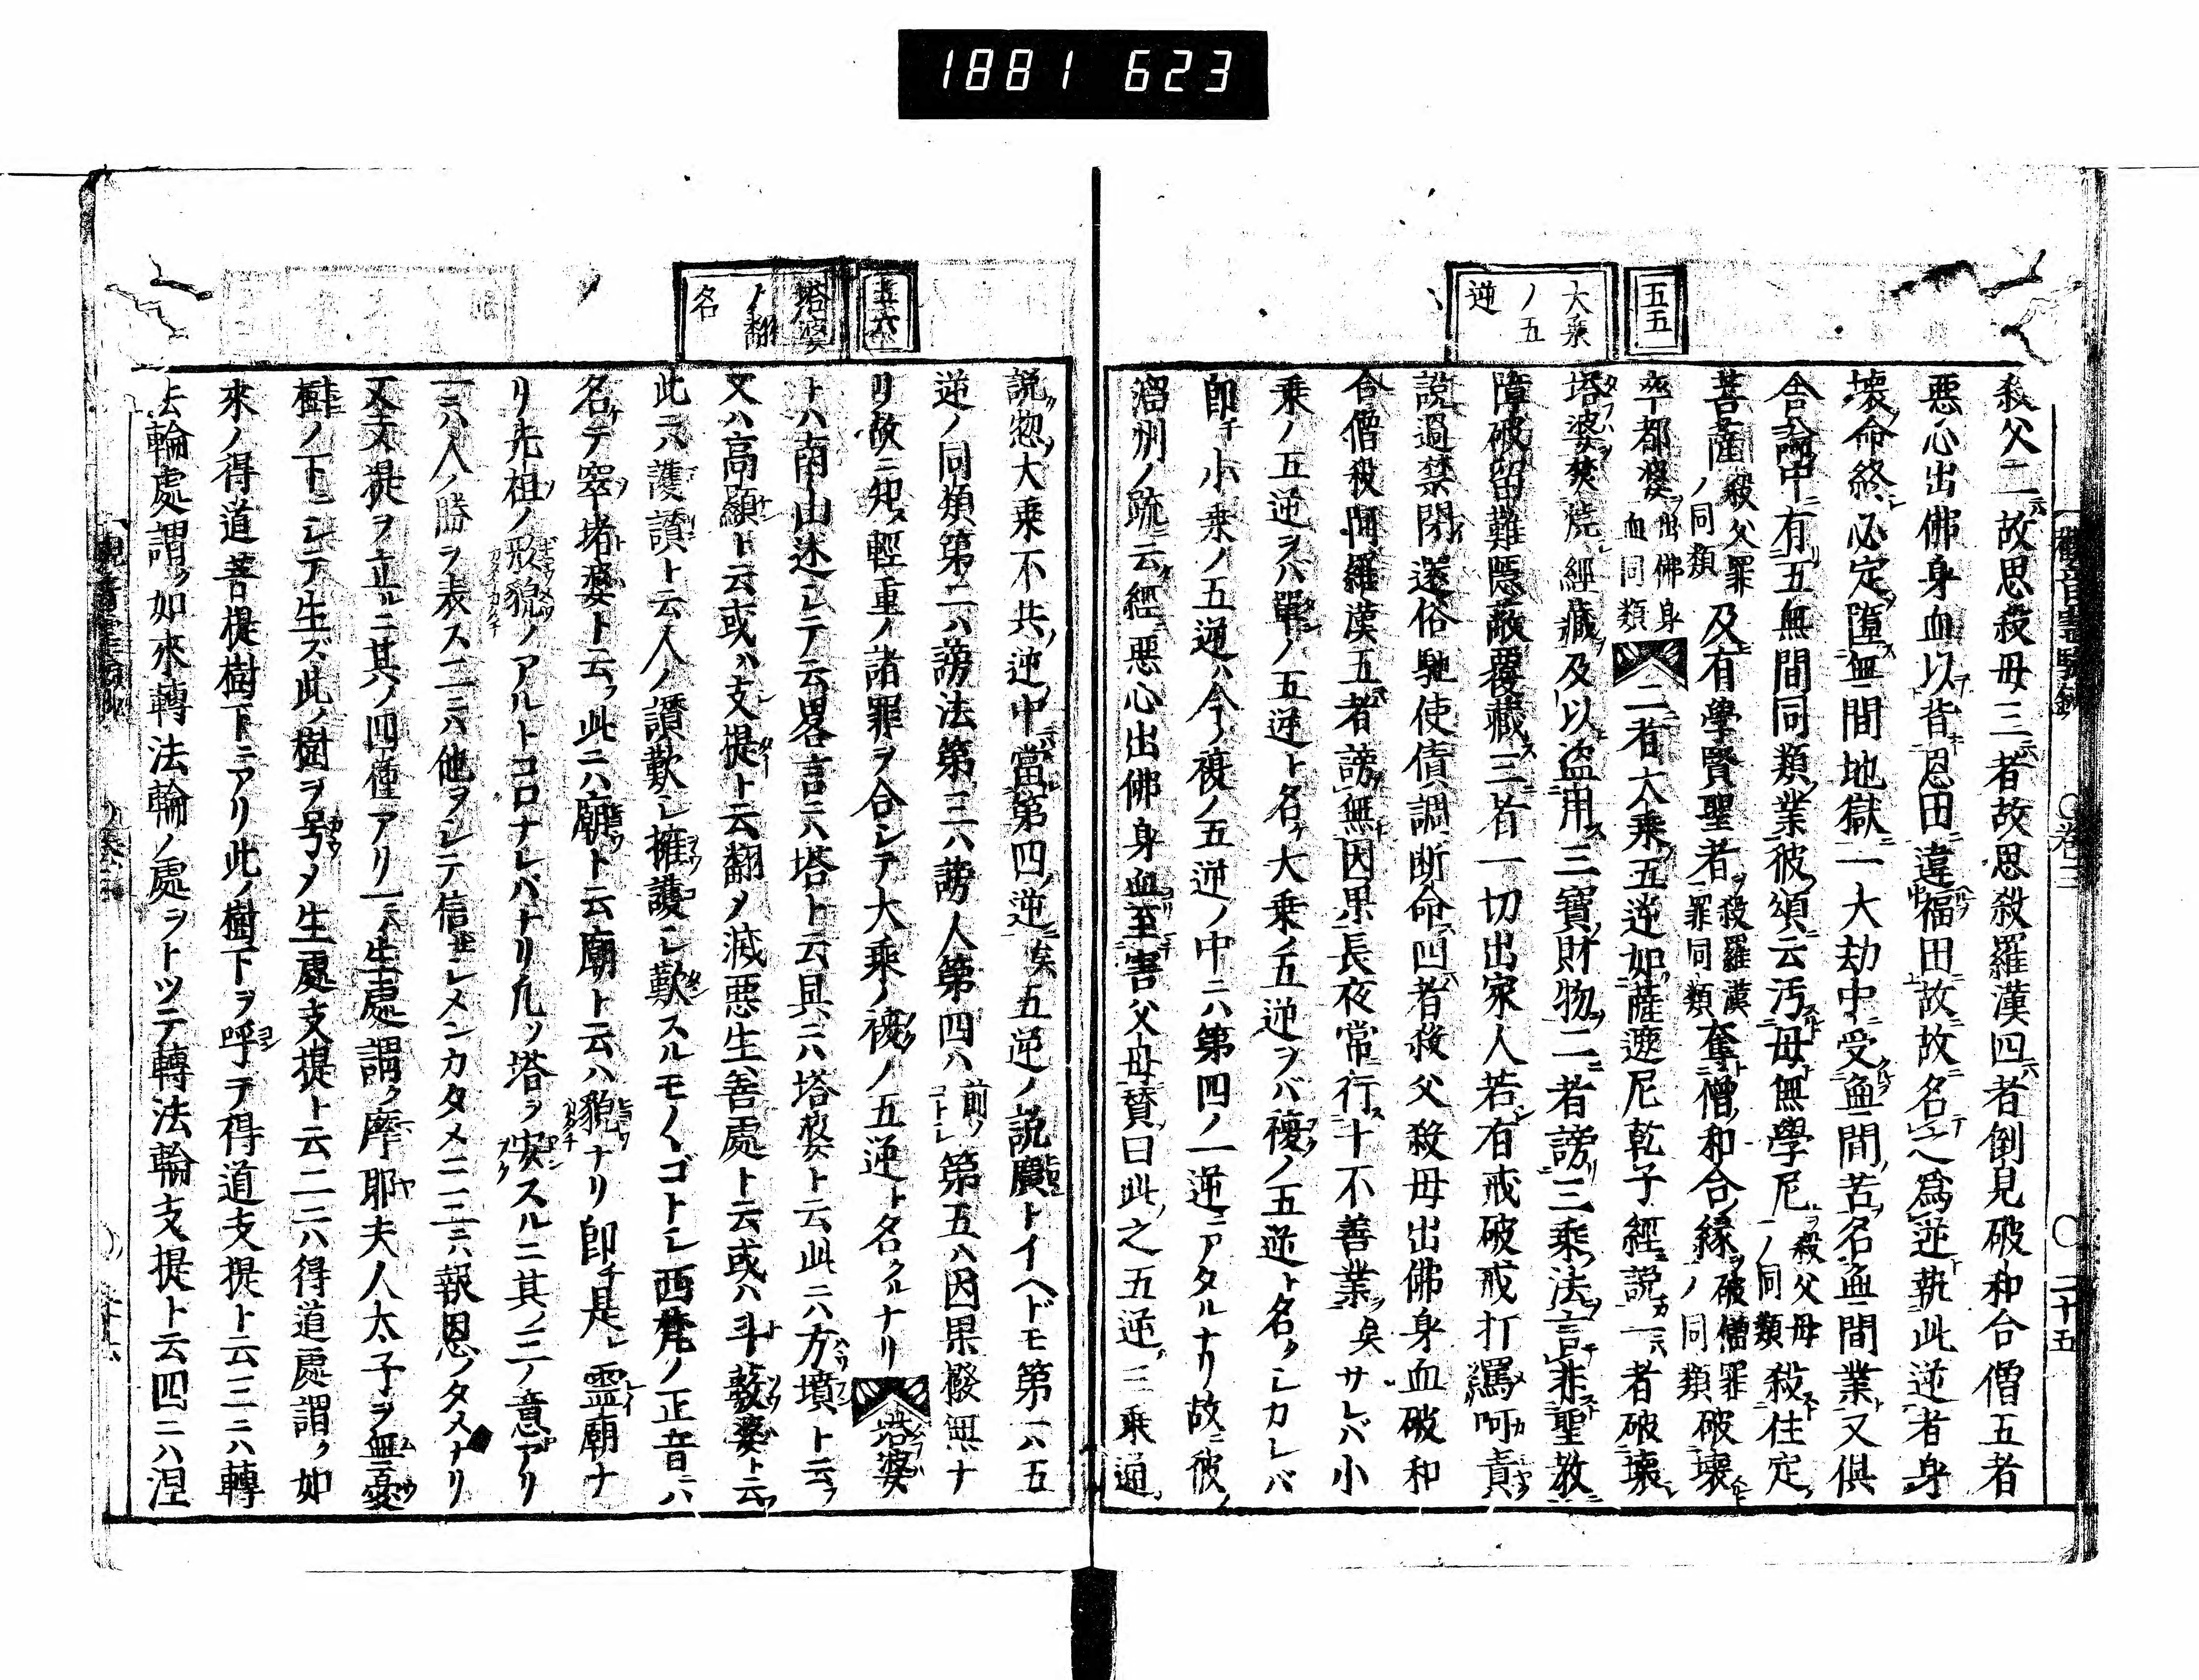 1881 623
五五
大乗
ノ五
逆
殺父二ニハ故思殺母三ニハ者故思殺羅漢四ニハ者倒見破和合僧五者
惡心出佛身血以背恩田違福田故故名之爲逆執此逆者身
壊命終必定墮無間地獄一大劫中受無間苦名無間業又倶
舎論中有五無間同類業彼頌云汚母無學尼殺父母ノ同類殺住定
菩薩殺父罪ノ同類及有學賢聖者殺羅漢罪同類奪僧和合縁破僧罪ノ同類破壊
卒都婆出佛身血同類二者大乗五逆如薩遮尼乾子經説一者破壊
塔婆焚燒經藏及以盗用三寶財物二者謗三乘法言非聖教
障破留難隱蔽覆藏三者一切出家人若有戒破戒打罵呵責
説過禁閉還俗馳使債調断命四者殺父殺母出佛身血破和
合僧殺阿羅漢五者謗無因果長夜常行十不善業矣サレバ小
乗ノ五逆ヲハ單ノ五逆ト名ク大乗ノ五逆ヲバ複ノ五逆ト名クシカレバ
即チ小乗ノ五逆ハ今ノ複ノ五逆ノ中ニハ第四ノ一逆ニアタルナリ故ニ彼ノ
溜州ノ疏云經惡心出佛身血至害父母賛曰此之五逆三乗通
五六
塔婆
ノ翻
名
説惣大乗不共逆中當第四逆矣五逆ノ説廣トイヘドモ第一ハ五
逆ノ同類第二ハ謗法第三ハ謗人第四ハ前ノコトシ第五ハ因果撥無ナ
リ故ニ知ヌ輕重ノ諸罪ヲ合シテ大乗ノ複ノ五逆ト名クルナリ塔婆
トハ南山述シテ云畧言ニハ塔ト云具ニハ塔婆ト云此ニハ方墳ト云フ
又ハ高顯ト云或ハ支提ト云翻メ滅悪生善處ト云或ハ斗薮婆ト云
此ニハ護讃ト云人ノ讃歎シ擁護シ歎スルモノヽゴトシ西梵ノ正音ニハ
名ケテ窣堵婆ト云フ此ニハ廟ト云廟ト云ハ貌ナリ即チ是レ霊廟ナ
リ先祖ノ形貌ノアルトコロナレバナリ凡ソ塔ヲ安スルニ其ノ三ノ意アリ
一ニハ人ノ勝ヲ表ス二ニハ他ヲシテ信ゼシメンカタメニ三ニハ報恩ノタメナリ
又支提ヲ立ルニ其ノ四種アリ一ニハ生處謂ク摩耶夫人太子ヲ無憂
樹ノ下ニシテ生ズ此ノ樹ヲ号メ生處支提ト云二ニハ得道處謂ク如
來ノ得道菩提樹下ニアリ此ノ樹下ヲ呼テ得道支提ト云三ニハ轉
法輪處謂ク如來轉法輪ノ處ヲトツテ轉法輪支提ト云四ニハ涅